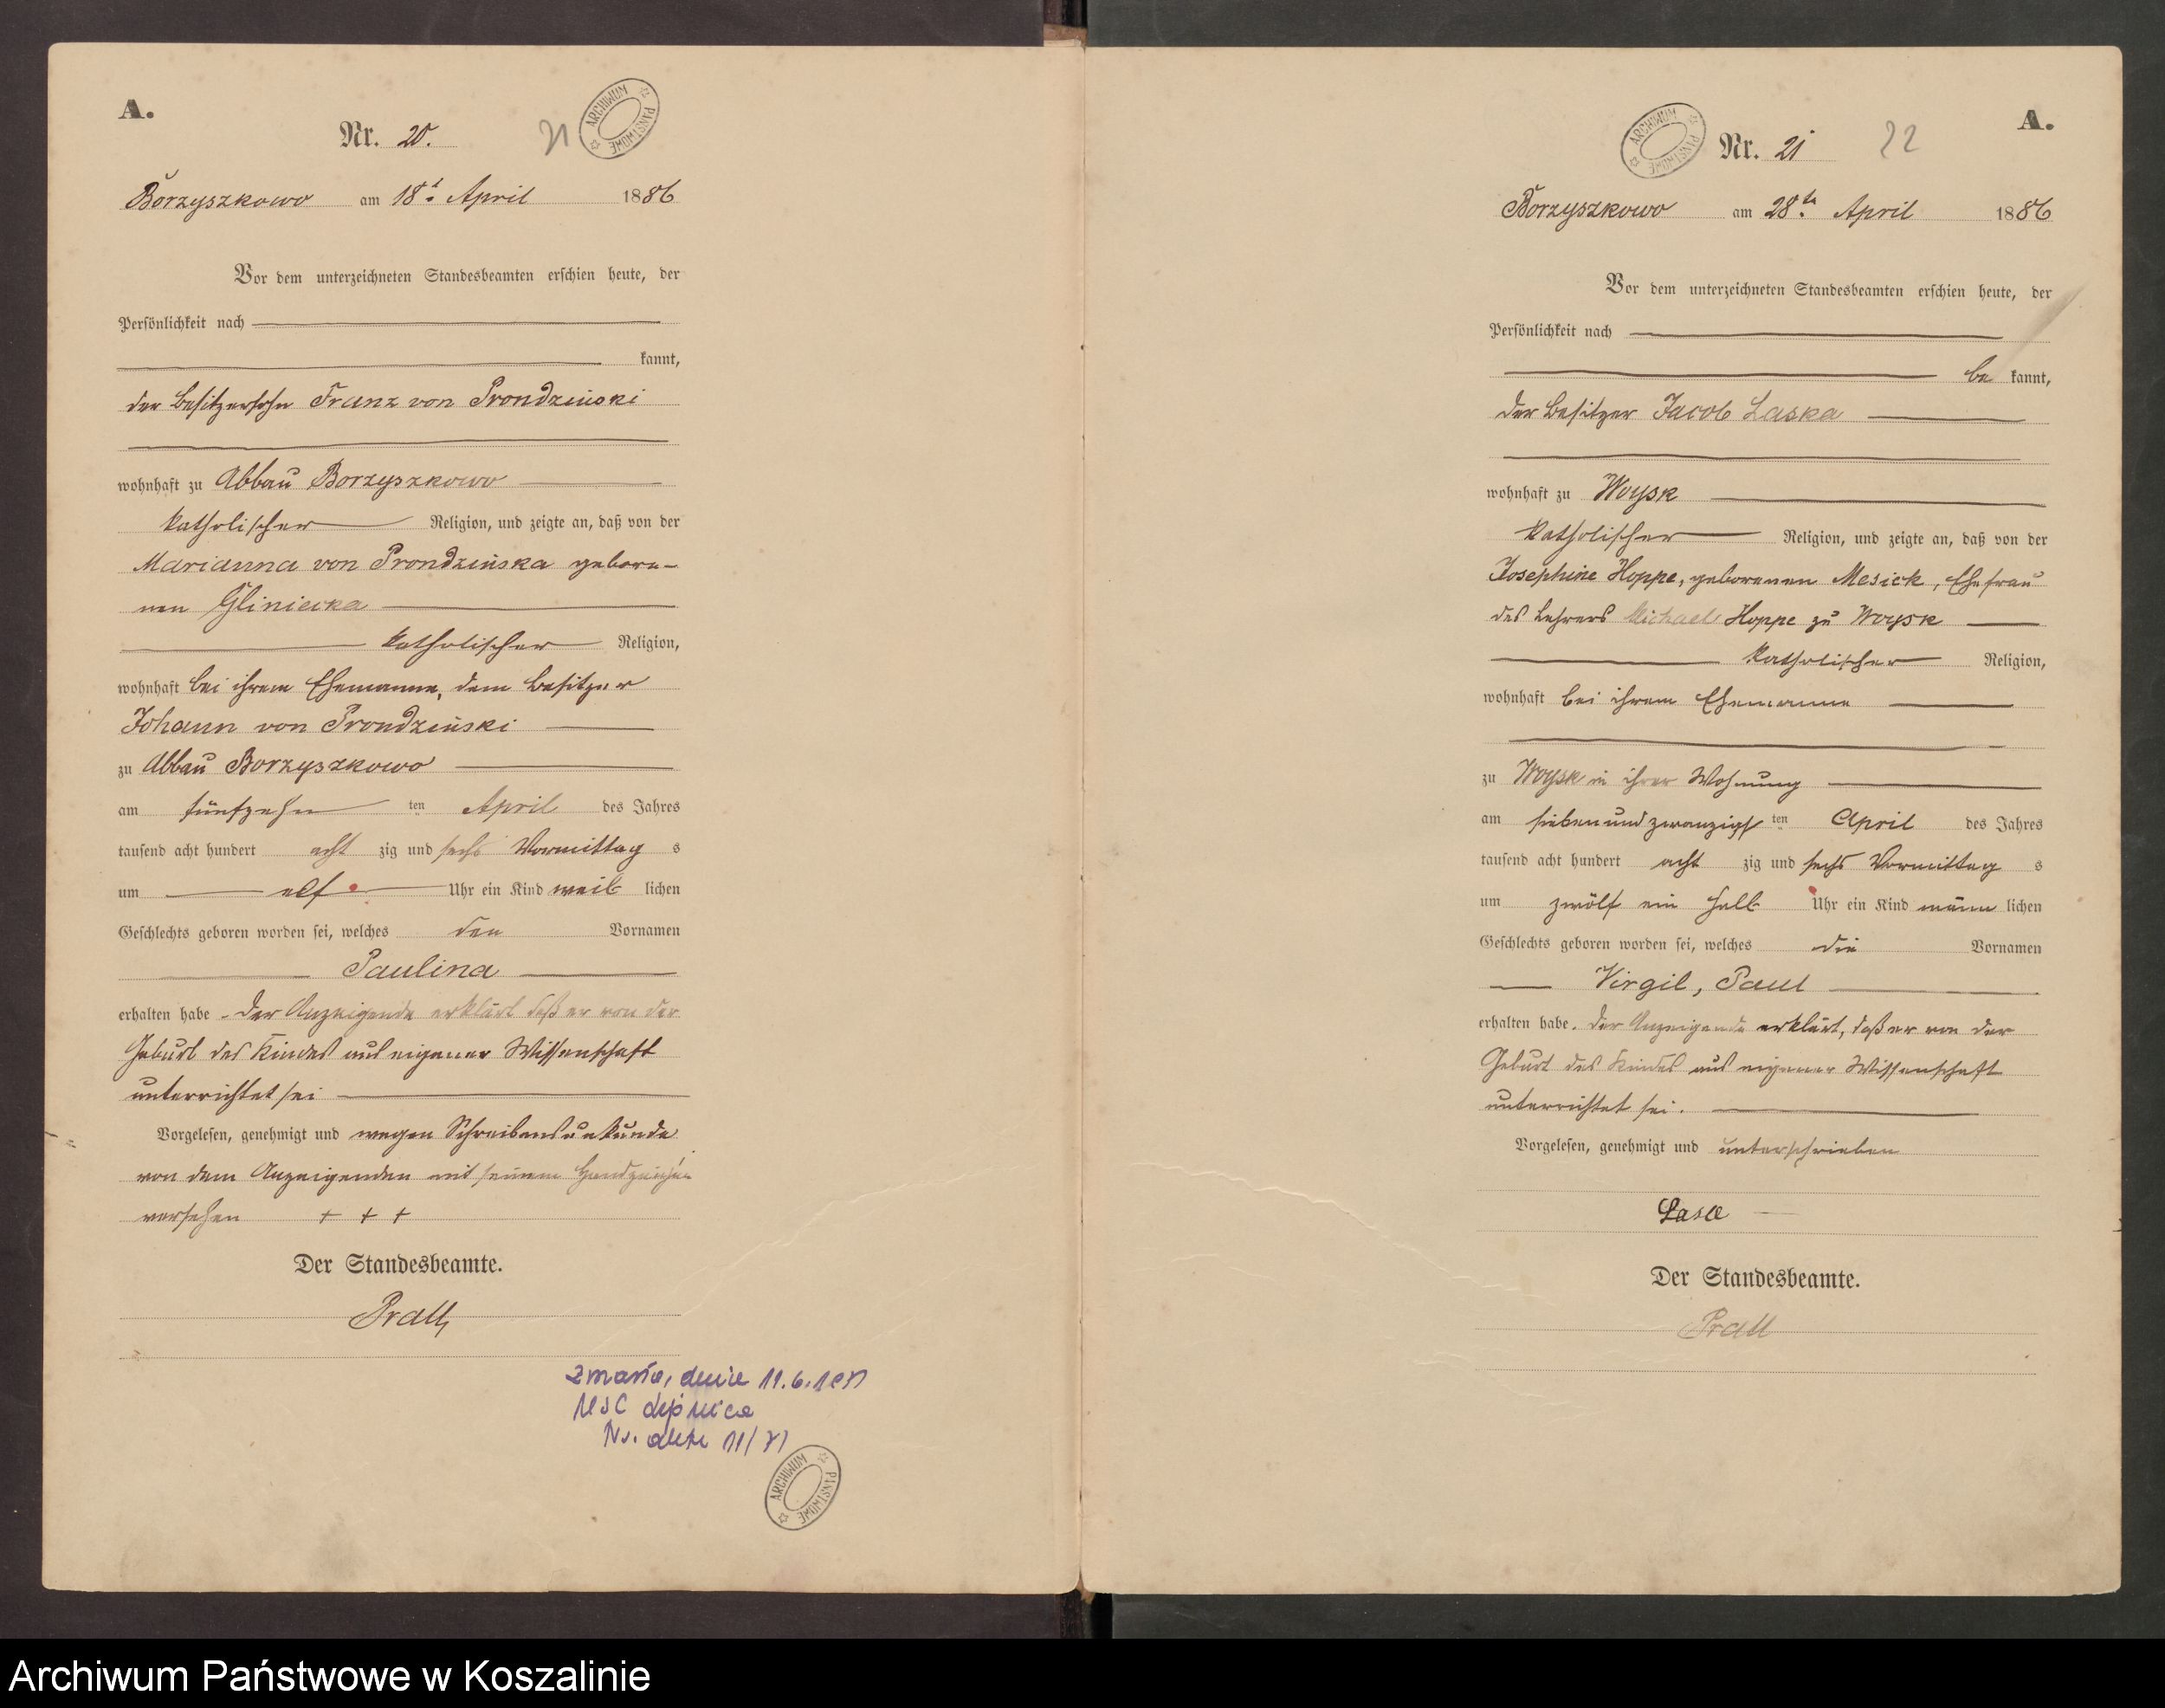 A.
Nr. 20.
21
ARCHIWUM PAŃSTWOWE
Borzyszkowo am 18t. April 1886
Vor dem unterzeichneten Standesbeamten erschien heute, der
Persönlichkeit nach
kannt,
der Besitzersohn Franz von Prondzinski
wohnhaft zu Abbau Borzyszkowo
katholischer Religion, und zeigte an, daß von der
Marianna von Prondzinska gebore-
nen Gliniecka
katholischer Religion,
wohnhaft bei ihrem Ehemanne, dem Besitzer
Johann von Prondzinski
zu Abbau Borzyszkowo
am fünfzehn ten April des Jahres
tausend acht hundert acht zig und sechs Vormittag s
um elf Uhr ein Kind weib lichen
Geschlechts geboren worden sei, welches den Vornamen
Paulina
erhalten habe. Der Anzeigende erklärt daß er von der
Geburt des Kindes aus eigener Wissenschaft
unterrichtet sei
Vorgelesen, genehmigt und wegen Schreibensunkunde
von dem Anzeigenden mit seinem Handzeichen
versehen + + +
Der Standesbeamte.
Prall
11.6.1971
USC Lipnica
Nr. aktu 11/71
ARCHIWUM PAŃSTWOWE
A.
ARCHIWUM PAŃSTWOWE
Nr. 21
22
Borzyszkowo am 28te. April 1886
Vor dem unterzeichneten Standesbeamten erschien heute, der
Persönlichkeit nach
be kannt,
der Besitzer Jacob Laska
wohnhaft zu Woysk
katholischer Religion, und zeigte an, daß von der
Josephine Hoppe, geborenen Mesick, Ehefrau
des Lehrers Michael Hoppe zu Woysk
katholischer Religion,
wohnhaft bei ihrem Ehemanne
zu Woysk in ihrer Wohnung
am siebenundzwanzigs ten April des Jahres
tausend acht hundert acht zig und sechs Vormittag s
um zwölf ein halb Uhr ein Kind männ lichen
Geschlechts geboren worden sei, welches die Vornamen
Virgil, Paul
erhalten habe. Der Anzeigende erklärt, daß er von der
Geburt des Kindes aus eigener Wissenschaft
unterrichtet sei.
Vorgelesen, genehmigt und unterschrieben
Der Standesbeamte.
Prall
Archiwum Państwowe w Koszalinie